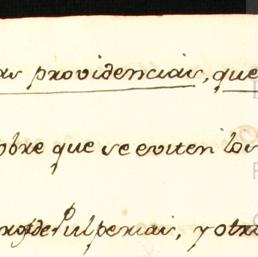 as providencias, que
obre que se eviten los
de Pulperias, y otr